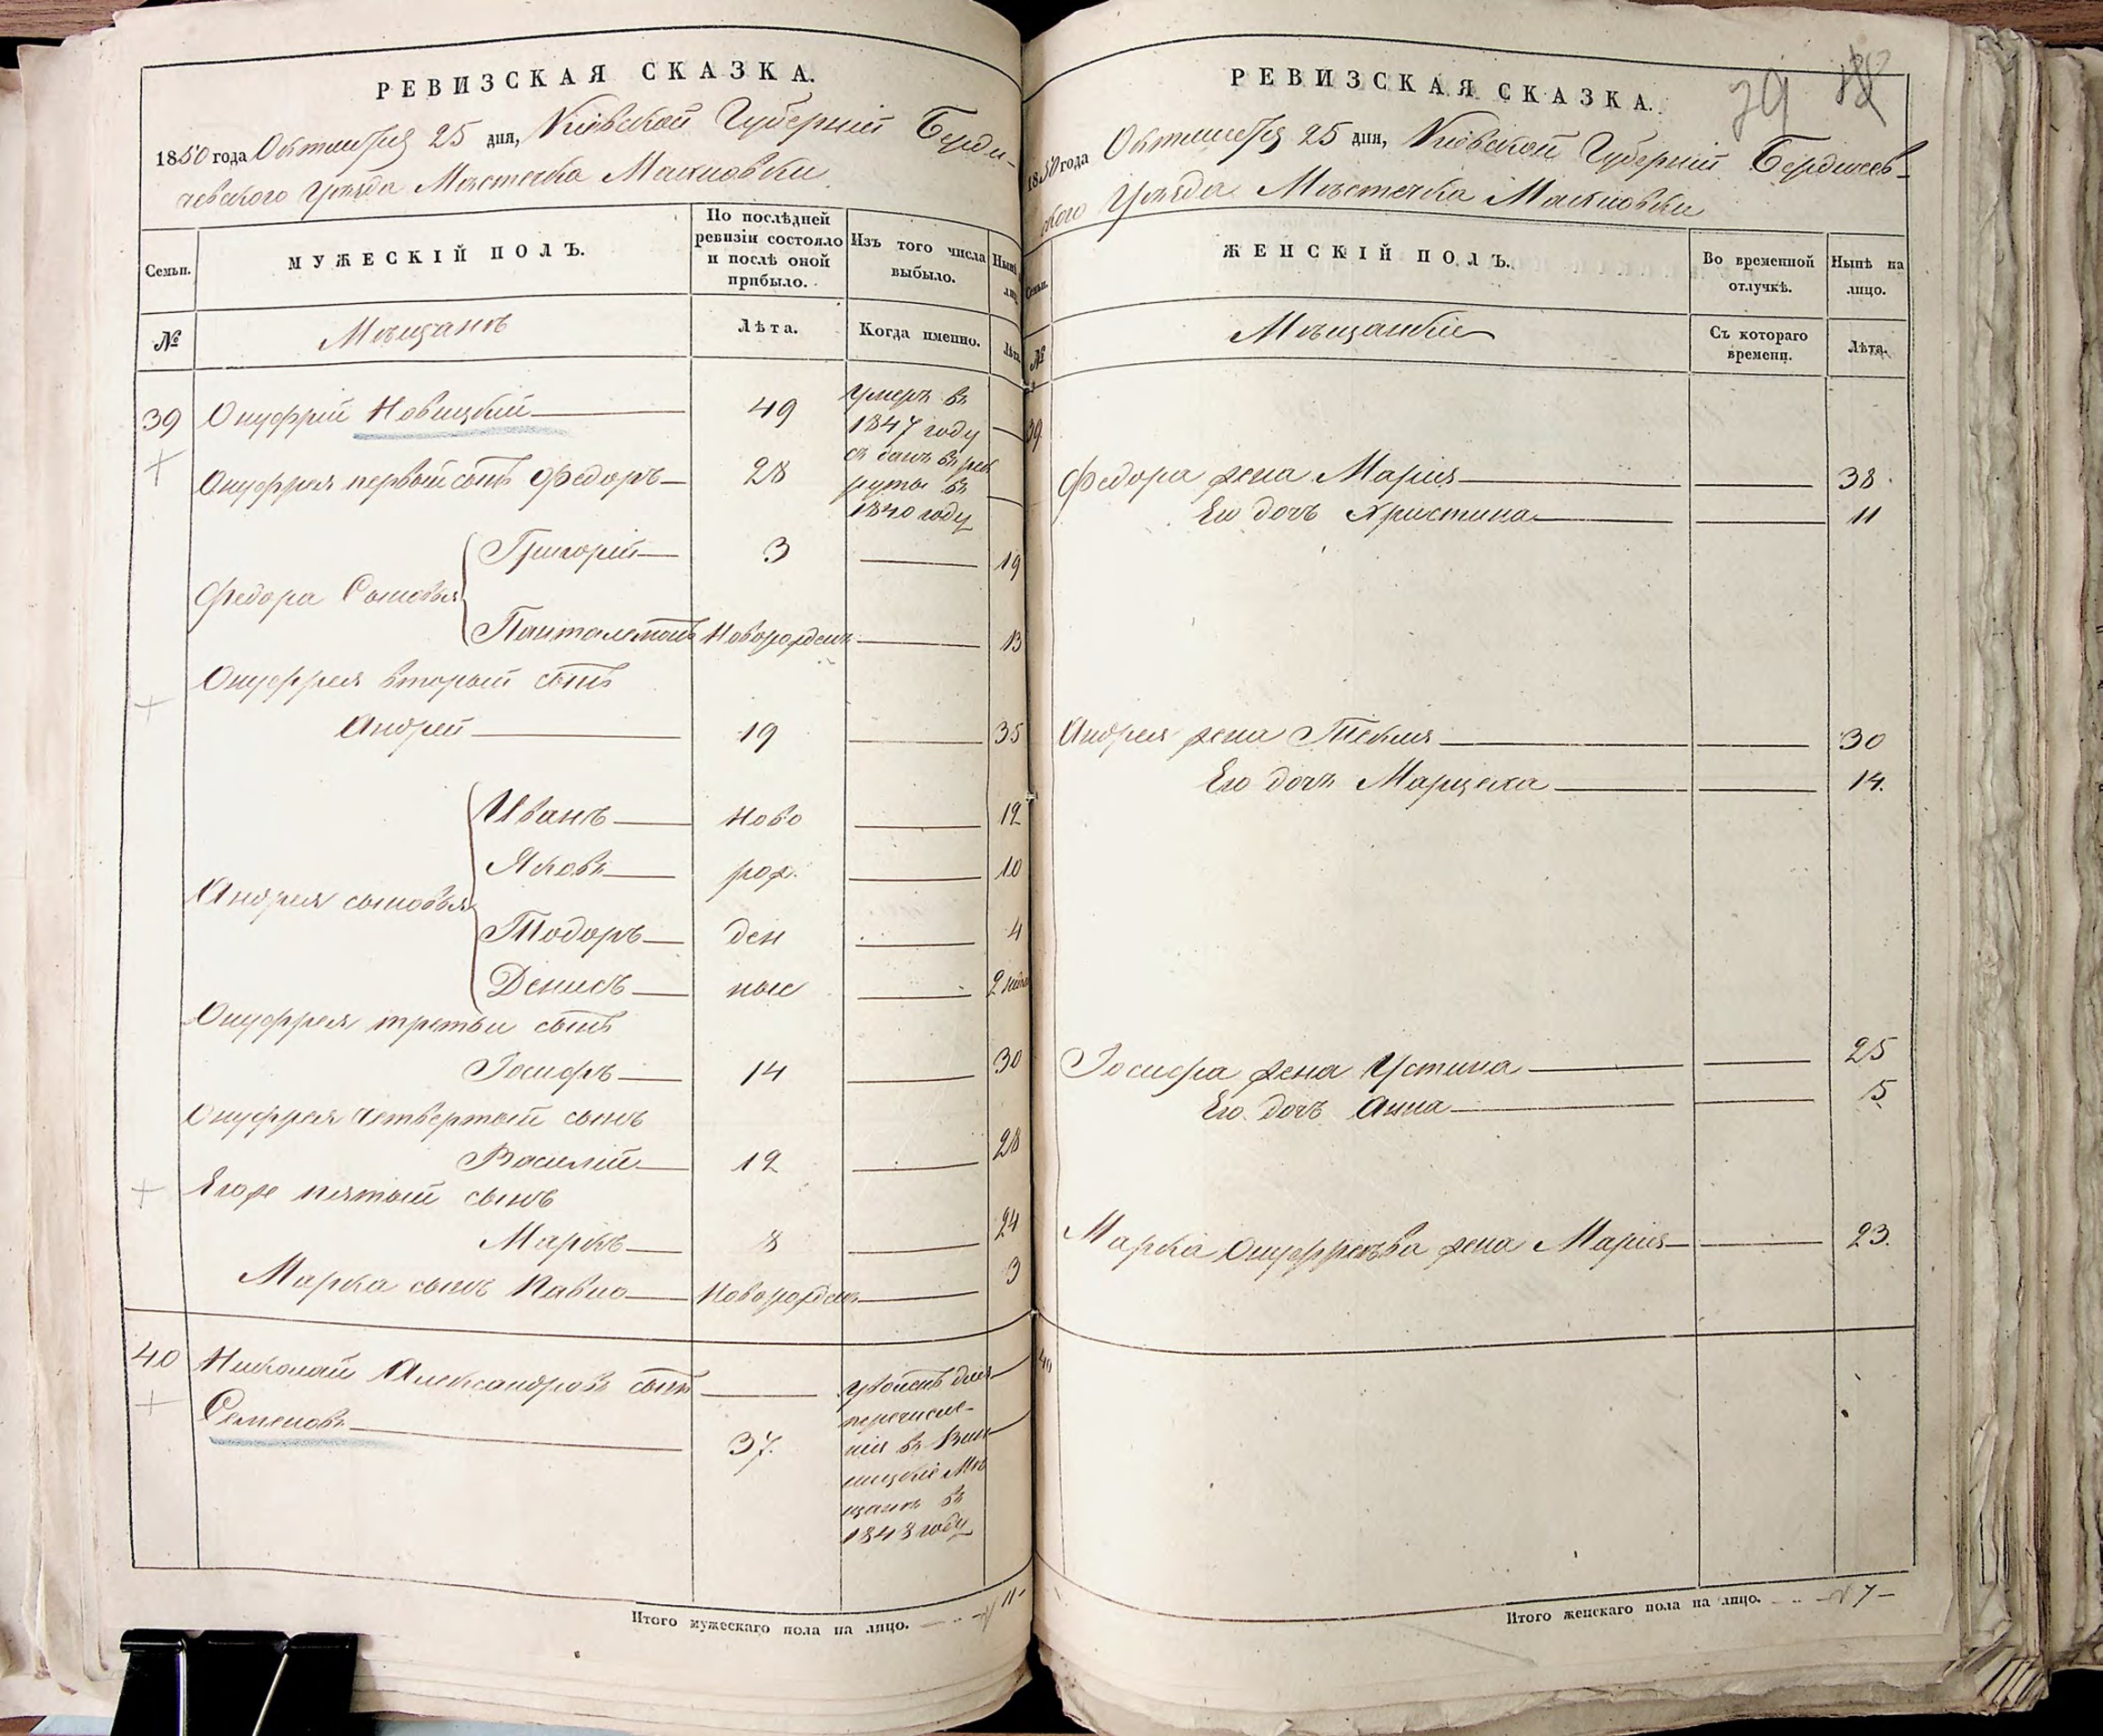 РЕВИЗСКАЯ СКАЗКА.
1850 года Октября 25 дня, Киевской Губерніи Берди-
чевского Уѣзда Мѣстечка Махновки
Семьи. МУЖЕСКІЙ ПОЛЪ. По послѣдней ревизіи состояло и послѣ оной прибыло. Изъ того числа выбыло. Нынѣ лиц
№ Мѣщанъ Лѣта. Когда именно. Лѣта
39 Онуфрій Новицкій 49 Умеръ въ
1847 году
Онуфрея первый сынъ Федоръ 28 сданъ въ рек
руты въ
1840 году
Григорій 3 19
Федора Сыновья
Панталемонъ Новорожден 13
Онуфрея вторый сынъ
Андрей 19 35
Иванъ Ново 12
Яковъ рож. 10
Андрея сыновья
Тодоръ ден 4
Денисъ ные 2 неде
Онуфрея третьи сынъ
Іосифъ 14 30
Онуфрея четвертый сынъ
Василій 12 28
Егоже пятый сынъ
Марко 8 24
Марка сынъ Павло Новорожден 3
40 Николай Александровъ сынъ уволенъ для
Семеновъ 37. перечисле-
нія въ Вин
ницкіе Мѣ
щане въ
1848 году
Итого мужескаго пола на лицо. 11
РЕВИЗСКАЯ СКАЗКА.
39
1850 года Октября 25 дня, Киевской Губерніи Бердичев-
ского Уѣзда Мѣстечка Махновки
Семьи. ЖЕНСКІЙ ПОЛЪ. Во временной отлучкѣ. Нынѣ на лицо.
№ Мѣщанкіе Съ котораго времени. Лѣта.
39
Федора жена Марія 38
Его дочь Христина 11
Андрея жена Текля 30
Его дочь Марцеха 14.
Іосифа жена Устина 25
Его дочь Анна 5
Марка Онуфрѣева жена Марія 23.
40
Итого женскаго пола на лицо. 7